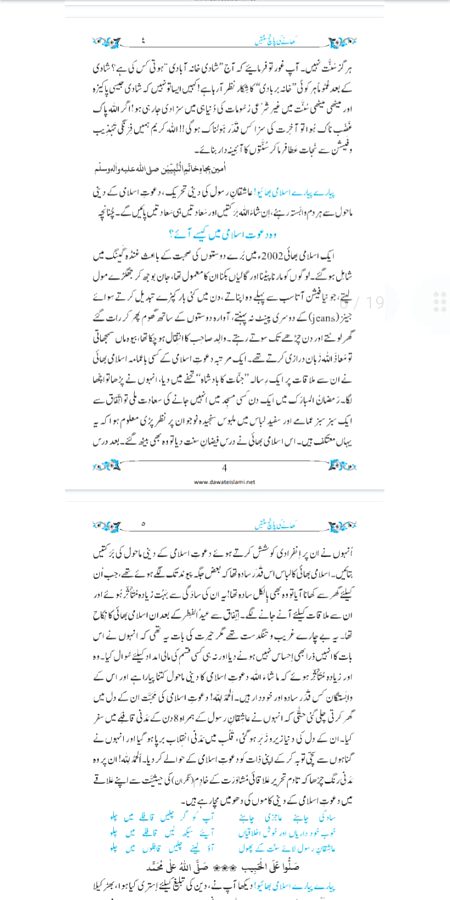 کھانے کی پانچ سنّتیں
٤
ہر گز سنّت نہیں۔ آپ غور تو فرمایئے کہ آج ”شادی خانہ آبادی“ ہوتی کس کی ہے؟ شادی
کے بعد عُمُوماً ہر کوئی ”خانہ بربادی“ کا شِکار نظر آرہا ہے! کہیں ایسا تو نہیں کہ شادی جیسی پاکیزہ
اور میٹھی میٹھی سنّت میں غیر شرعی رُسومات کی دُنیا ہی میں سزا دی جارہی ہو! اگر اللہ پاک
غضب ناک ہوا تو آخرت کی سزا کس قَدَر ہَولناک ہوگی!! اللہ کریم ہمیں فرنگی تہذیب
و فیشن سے نجات عطا فرما کر سنّتوں کا آئینہ دار بنائے۔
اٰمین بجاہِ خاتَمِ النَّبِیّٖن صلی اللہ علیہ واٰلہٖ وسلم
پیارے پیارے اسلامی بھائیو! عاشقانِ رسول کی دینی تحریک، دعوتِ اسلامی کے دینی
ماحول سے ہر دم وابستہ رہئے، اِن شاءَ اللہ برکتیں اور سَعادتیں ہی سَعادتیں پائیں گے۔ چُنانچِہ
وہ دعوتِ اسلامی میں کیسے آئے؟
ایک اسلامی بھائی 2002ء میں بُرے دوستوں کی صحبت کے باعث غنڈہ گینگ میں
شامل ہوگئے۔ لوگوں کو مارنا پیٹنا اور گالیاں بکنا ان کا معمول تھا، جان بوجھ کر جھگڑے مول
لیتے، جو نیا فیشن آتا سب سے پہلے وہ اپناتے، دن میں کئی بار کپڑے تبدیل کرتے سوائے
جینز (jeans) کے دوسری پینٹ نہ پہنتے، آوارہ دوستوں کے ساتھ گھوم پھر کر رات گئے
گھر لوٹتے اور دن چڑھے تک سوتے رہتے۔ والد صاحب کا انتقال ہوچکا تھا، بیوہ ماں سمجھاتی
تو مَعَاذَ اللہ زَبان درازی کرتے تھے۔ ایک مرتبہ دعوتِ اسلامی کے کسی باعمامہ اسلامی بھائی
نے ان سے ملاقات پر ایک رسالہ ”جنّات کا بادشاہ“ تحفے میں دیا، انہوں نے پڑھا تو اچھا
لگا۔ رَمضانُ المبارَک میں ایک دن کسی مسجد میں انہیں جانے کی سعادت ملی تو اتّفاق سے
ایک سبز سبز عمامے اور سفید لباس میں ملبوس سنجیدہ نوجوان پر نظر پڑی معلوم ہوا کہ یہ
یہاں معتکف ہیں۔ اس اسلامی بھائی نے درسِ فیضانِ سنت دیا تو وہ بھی بیٹھ گئے۔ بعد درس
4
www.dawateislami.net
/ 19
کھانے کی پانچ سنّتیں
٥
اُنہوں نے ان پر اِنفرادی کوشش کرتے ہوئے دعوتِ اسلامی کے دینی ماحول کی بَرَکتیں
بتائیں۔ اسلامی بھائی کا لباس اس قَدَر سادہ تھا کہ بعض جگہ پیوند تک لگے ہوئے تھے، جب اُن
کیلئے گھر سے کھانا آیا تو وہ بھی بالکل سادہ تھا! یہ ان کی سادَگی سے بہُت زیادہ مُتأثِّر ہُوئے اور
ان سے ملاقات کیلئے آنے جانے لگے۔ اِتّفاق سے عیدُ الفِطر کے بعد ان اسلامی بھائی کا نکاح
تھا۔ یہ بے چارے غریب و تنگدست تھے مگر حیرت کی بات یہ تھی کہ انہوں نے اس
بات کا انہیں ذرا بھی اِحساس نہیں ہونے دیا اور نہ ہی کسی قسم کی مالی امداد کیلئے سُوال کیا۔ وہ
اور زیادہ مُتأثِّر ہوئے کہ ما شاءَ اللہ دعوتِ اسلامی کا دینی ماحول کتنا پیارا ہے اور اس کے
وابستگان کس قَدَر سادہ اور خود دار ہیں۔ اَلحَمدُ لِلّٰہ! دعوتِ اسلامی کی محبّت ان کے دل میں
گھر کرتی چلی گئی حتّٰی کہ انہوں نے عاشقانِ رسول کے ہمراہ 8 دن کے مَدَنی قافلے میں سفر
کیا۔ ان کے دل کی دنیا زیر و زَبَر ہوگئی، قلب میں مَدَنی انقلاب برپا ہوگیا اور انہوں نے
گناہوں سے سچّی توبہ کرکے اپنی ذات کو دعوتِ اسلامی کے حوالے کردیا۔ اَلحَمدُ لِلّٰہ! ان پر وہ
مَدَنی رنگ چڑھا کہ تادمِ تحریر علاقائی مُشاورت کے خادِم (نگران) کی حیثیّت سے اپنے علاقے
میں دعوتِ اسلامی کے دینی کاموں کی دھومیں مچا رہے ہیں۔
سادگی چاہئے عاجزی چاہئے آپ کو گر چلیں قافلے میں چلو
خوب خودداریاں اور خوش اخلاقیاں آیئے سیکھ لیں قافلے میں چلو
عاشقانِ رسول لائے سنت کے پھول آؤ لینے چلیں قافلوں میں چلو
صَلُّوا عَلَی الْحَبِیب ❀❀❀ صَلَّی اللہُ عَلٰی مُحَمَّد
پیارے پیارے اسلامی بھائیو! دیکھا آپ نے، دین کی تبلیغ کیلئے اِستری کیا ہوا، بھڑکیلا